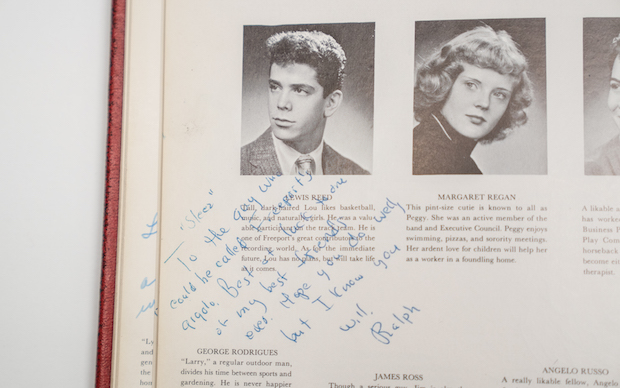 LEWIS REED
Tall, dark-haired Lou likes basketball,
music, and naturally, girls. He was a valu-
able participant on the track team. He is
one of Freeport's great contributors to the
recording world. As for the immediate
future, Lou has no plans, but will take life
as it comes.
MARGARET REGAN
This pint-size cutie is known to all as
Peggy. She was an active member of the
band and Executive Council. Peggy enjoys
swimming, pizzas, and sorority meetings.
Her ardent love for children will help her
as a worker in a foundling home.
A likable a
has worked
Business P
Play Com
horseback
become
therapist.
To the guy who
could be called
gigolo. Best of luck to one
of my best
ever. Hope you do well
but I know you
will.
Ralph
GEORGE RODRIGUES
"Larry," a regular outdoor man,
divides his time between sports and
gardening. He is never happier
JAMES ROSS
ANGELO RUSSO
A really likable fellow, Angelo
"Ly
and
gen
the
bon